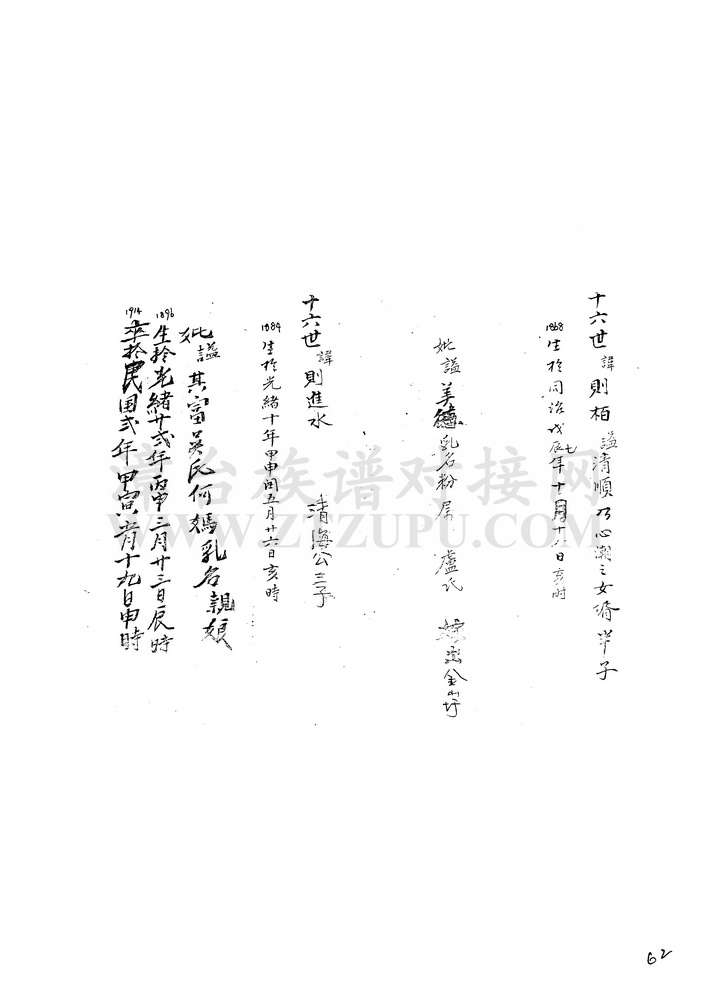 十六世 諱 則栢 諡清順乃心潮之女婿半子
1868
生於同治七戊辰年十月十八日亥时
妣諡 美德 乳名粉 盧氏 金山圩
十六世 諱 則進水 清海公三子
1884
生於光緒十年甲申閏五月廿六日亥時
妣諡 其富吳氏何媽乳名親娘
1896
生於光緒廿弍年丙申三月廿三日辰時
1914
卒於民国弍年甲寅 月十九日申時
漳台族谱对接网
WWW.ZTZUPU.COM
62